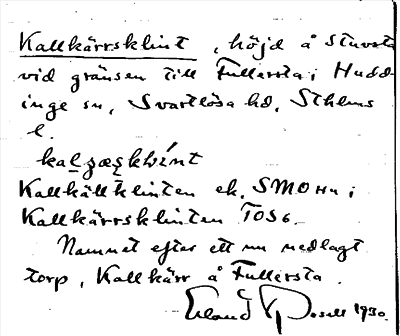 Kallkärrsklint, höjd å Stuvsta
vid gränsen till Fullersta i Hudd-
inge sn, Svartlösa hd, Sthlms
l.
Kallkällklinten ek. SMO Hu i
Kallkärrsklinten TOS6.
Namnet efter ett nu nedlagt
torp, Kallkärr å Fullersta.
Erland Rosell 1930.